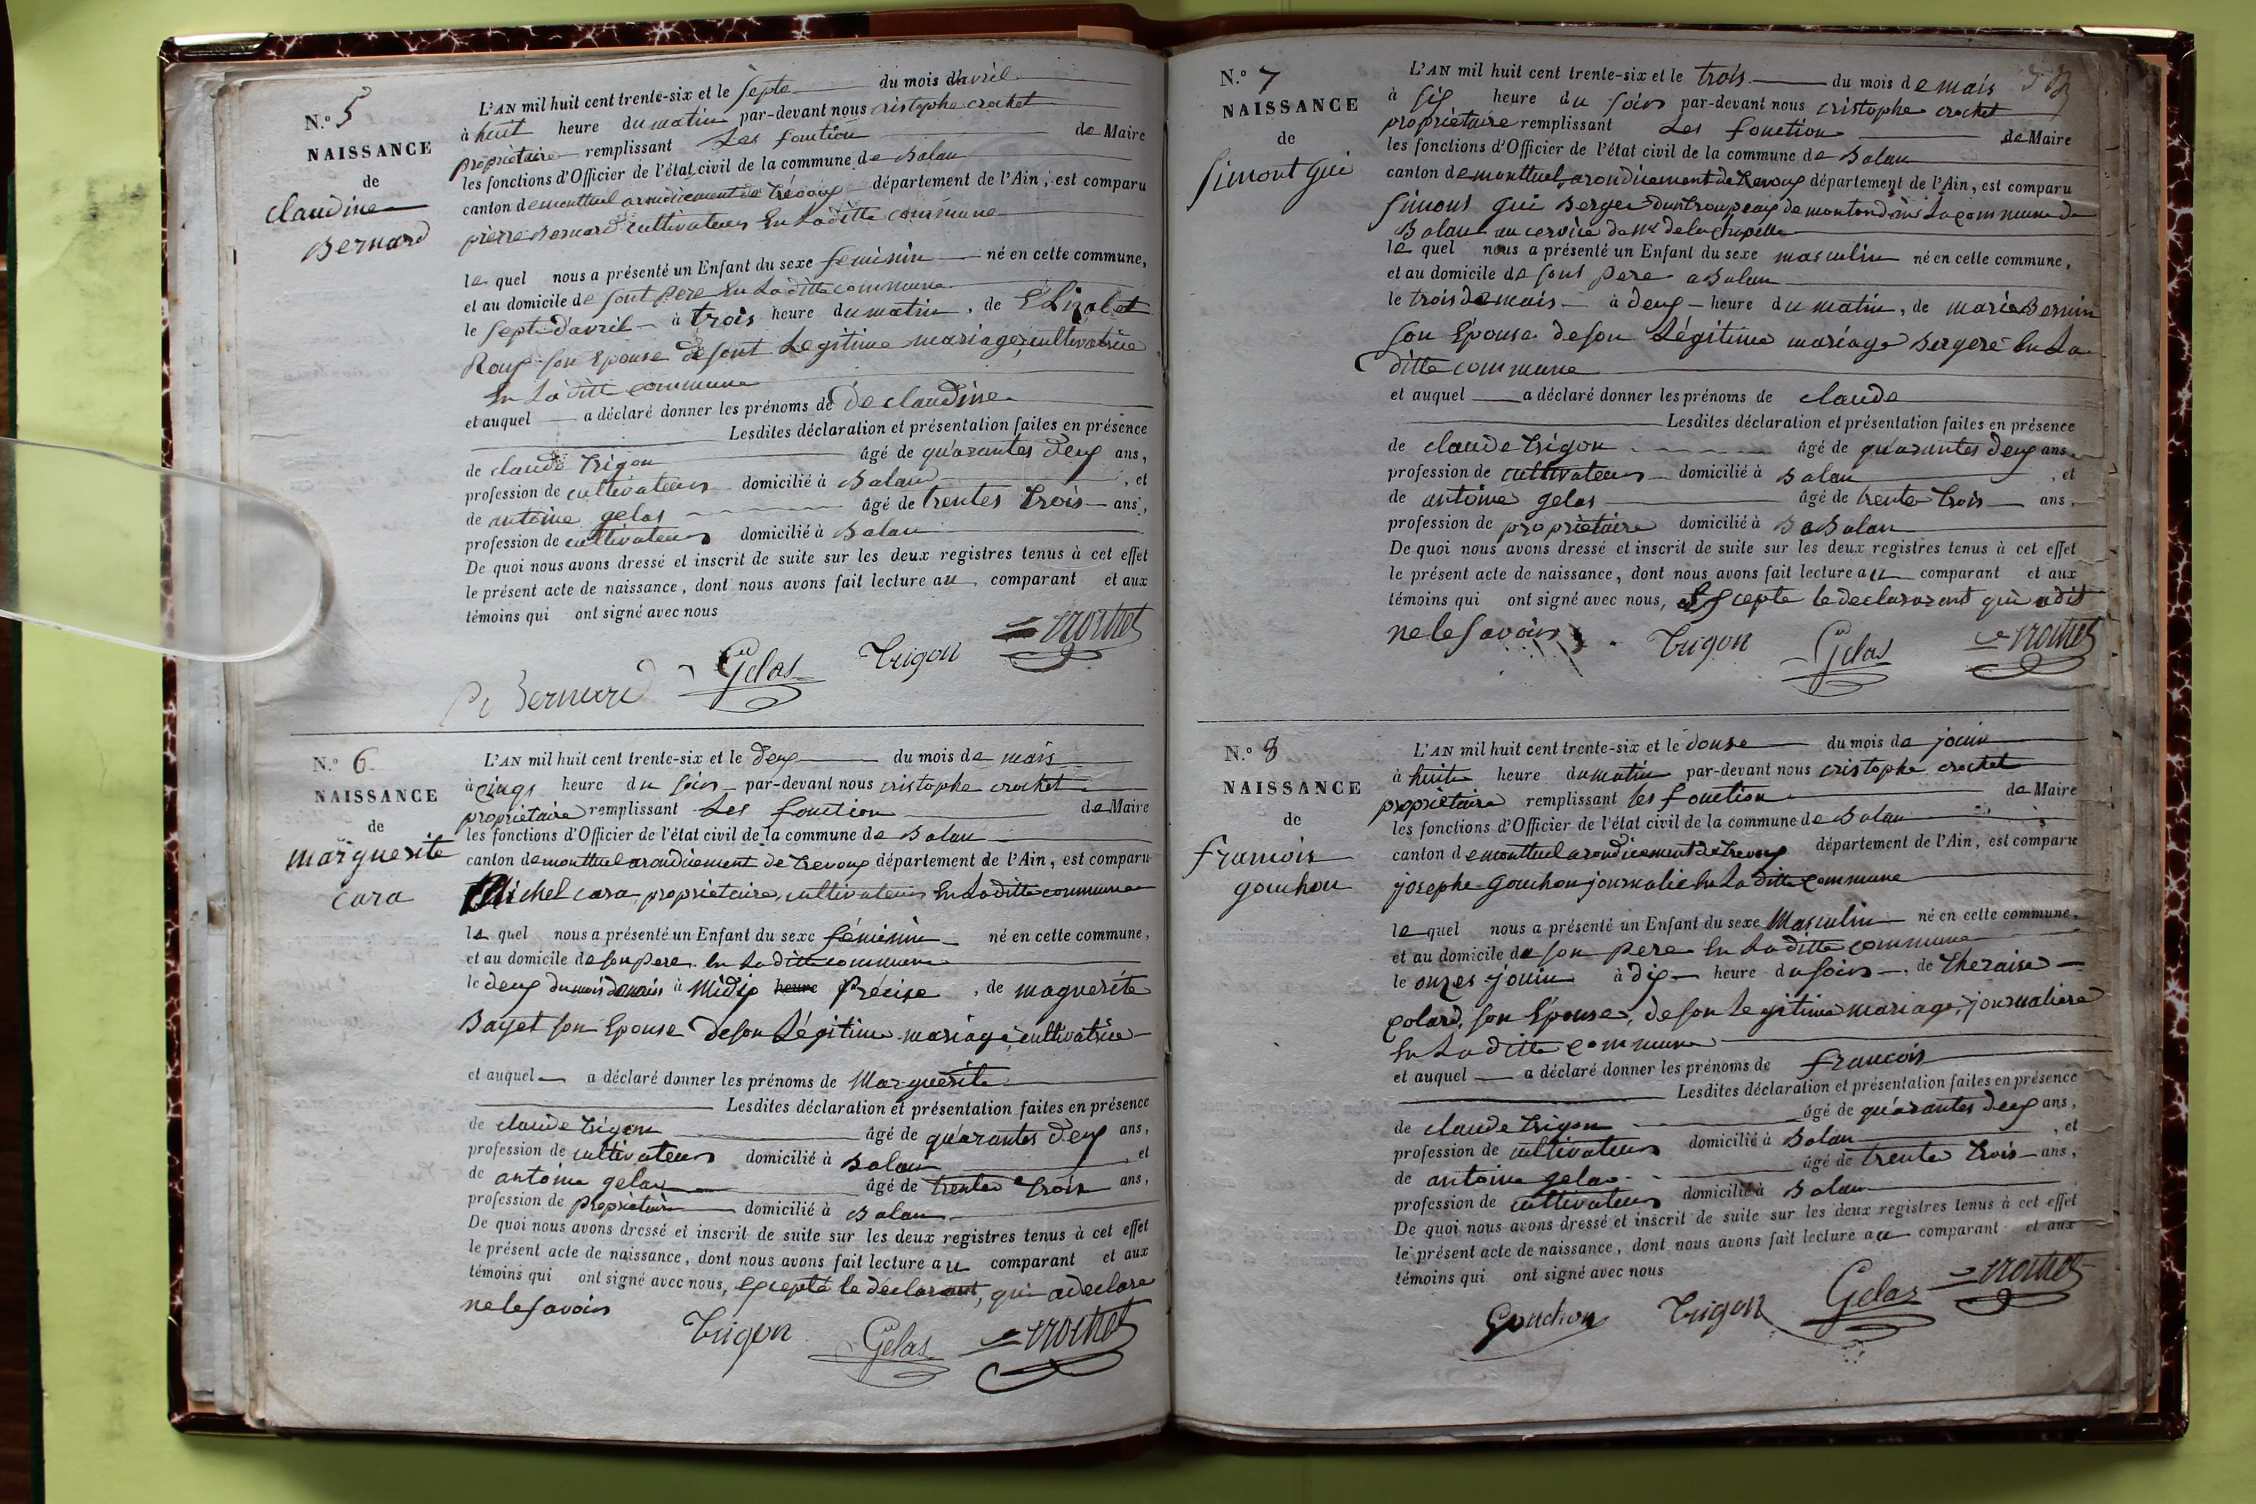 N.º 5
NAISSANCE
de
claudine
Bernard
L'AN mil huit cent trente-six et le septe du mois d'avril
à huit heure du matin par-devant nous cristophe crochet
propriétaire remplissant Les fonction de Maire
les fonctions d'Officier de l'état civil de la commune de Balan
canton de montluel arondicement de trévoux département de l'Ain, est comparu
pierre Bernard cultivateur En La ditte commune
le quel nous a présenté un Enfant du sexe féminin né en cette commune,
et au domicile de sont pere En La ditte commune
le septe d'avril à trois heure du matin, de Elizabet
Roux son Epouse de sont Legitime mariage, cultivatrice
En La ditte commune
et auquel a déclaré donner les prénoms de De claudine
Lesdites déclaration et présentation faites en présence
de claude trigon âgé de quarantes deux ans,
profession de cultivateur domicilié à Balan, et
de antoine gelas âgé de trentes trois ans,
profession de cultivateur domicilié à Balan
De quoi nous avons dressé et inscrit de suite sur les deux registres tenus à cet effet
le présent acte de naissance, dont nous avons fait lecture au comparant et aux
témoins qui ont signé avec nous
Bernard Gelas Trigon crochet
N.º 6
NAISSANCE
de
marguerite
Cara
L'AN mil huit cent trente-six et le deux du mois de mais
à cinqs heure du soir par-devant nous cristophe crochet
propriétaire remplissant Les fonction de Maire
les fonctions d'Officier de l'état civil de la commune de Balan
canton de montluel arondicement de trevoux département de l'Ain, est comparu
Michel cara propriétaire, cultivateur En La ditte commune
le quel nous a présenté un Enfant du sexe féminin né en cette commune,
et au domicile de son pere En La ditte commune
le deux du mois de mais à Midy heure Précise, de maguerite
Bayet son Epouse De son Légitime mariage, cultivatrice
et auquel a déclaré donner les prénoms de Marguerite
Lesdites déclaration et présentation faites en présence
de claude trigon âgé de quarantes deux ans,
profession de cultivateur domicilié à Balan et
de antoine gelas âgé de trente trois ans,
profession de Propriétaire domicilié à Balan
De quoi nous avons dressé et inscrit de suite sur les deux registres tenus à cet effet
le présent acte de naissance, dont nous avons fait lecture au comparant et aux
témoins qui ont signé avec nous, Excepté le déclarant, qui a declare
ne le savoir
Trigon Gelas crochet
N.º 7
NAISSANCE
de
simont gui
L'AN mil huit cent trente-six et le trois du mois de mais
à six heure du soir par-devant nous cristophe crochet
propriétaire remplissant Les fonction de Maire
les fonctions d'Officier de l'état civil de la commune de Balan
canton de montluel, arondicement de trevoux département de l'Ain, est comparu
simont gui Berger d'un troupeaux de mouton dans La commune de
Balan au cervice de Mr de la chapelle
le quel nous a présenté un Enfant du sexe masculin né en cette commune,
et au domicile de sont Pere a Balan
le trois de mais à deux heure du matin, de marie Bernin
son Epouse de son Légitime mariage Bergere En La
ditte commune
et auquel a déclaré donner les prénoms de claude
Lesdites déclaration et présentation faites en présence
de claude trigon âgé de quarantes deux ans,
profession de cultivateur domicilié à Balan, et
de antoine gelas âgé de trente trois ans,
profession de propriétaire domicilié à Balan
De quoi nous avons dressé et inscrit de suite sur les deux registres tenus à cet effet
le présent acte de naissance, dont nous avons fait lecture au comparant et aux
témoins qui ont signé avec nous, Excepte le declararent qui a dit
ne le savoir
Trigon Gelas crochet
N.º 8
NAISSANCE
de
francois
gouchon
L'AN mil huit cent trente-six et le douse du mois de jouin
à huite heure du matin par-devant nous cristophe crochet
propriétaire remplissant les fonction de Maire
les fonctions d'Officier de l'état civil de la commune de Balan
canton de montluel arondicement de trevoux département de l'Ain, est comparu
josephe Gouchon journalie En La ditte commune
le quel nous a présenté un Enfant du sexe Masculin né en cette commune,
et au domicile de son Pere En La ditte commune
le onzes jouin à dix heure du soir, de theraise
Colard, son Epouse, de son Legitime mariage, journaliere
En La ditte commune
et auquel a déclaré donner les prénoms de francois
Lesdites déclaration et présentation faites en présence
de claude trigon âgé de quarantes deux ans,
profession de cultivateur domicilié à Balan, et
de antoine gelas âgé de trente trois ans,
profession de cultivateur domicilié à Balan
De quoi nous avons dressé et inscrit de suite sur les deux registres tenus à cet effet
le présent acte de naissance, dont nous avons fait lecture au comparant et aux
témoins qui ont signé avec nous
Gouchon Trigon Gelas crochet